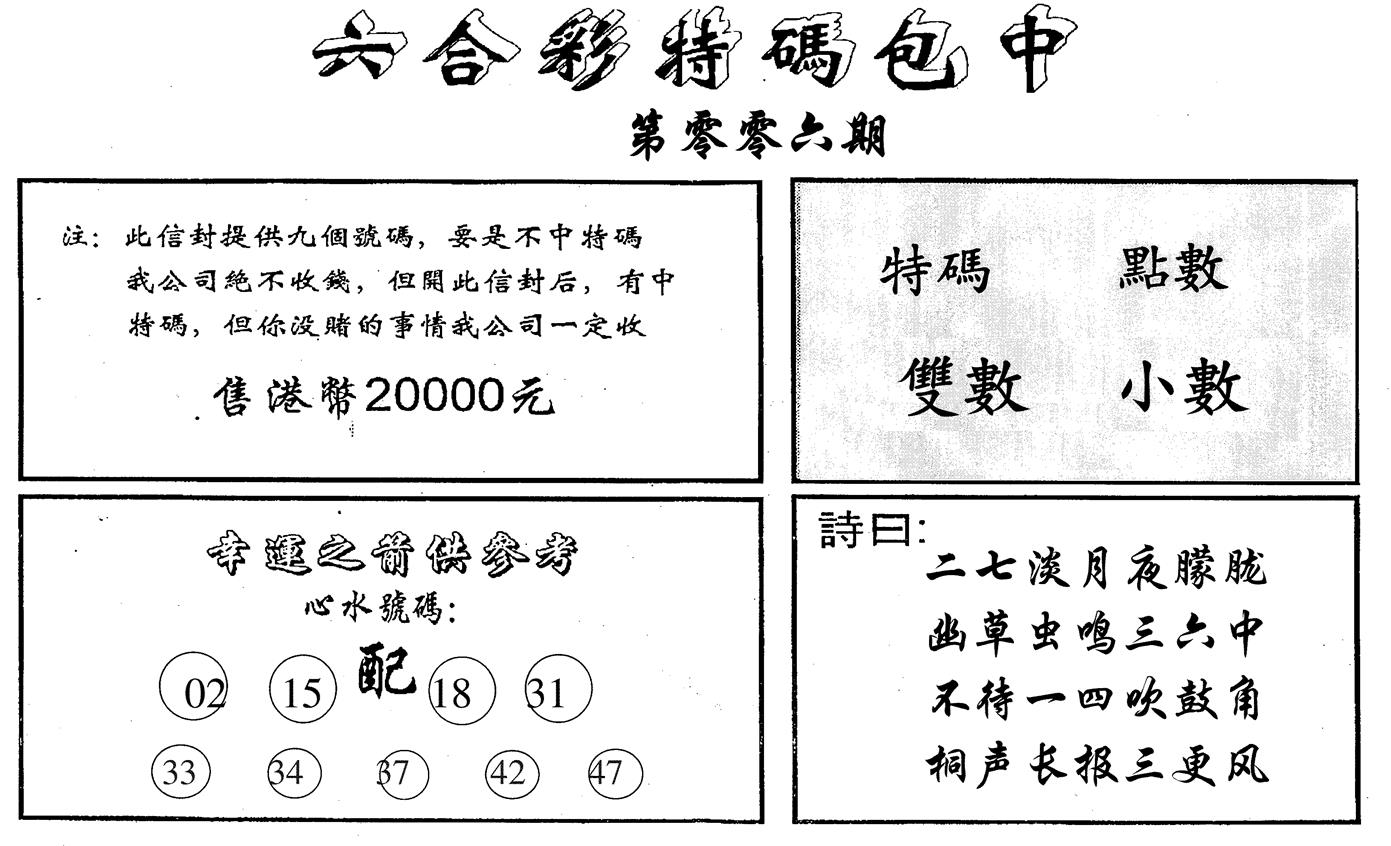 六合彩特碼包中
第零零六期
注：此信封提供九個號碼，要是不中特碼
我公司絕不收錢，但開此信封后，有中
特碼，但你没賭的事情我公司一定收
售港幣20000元
特碼 點數
雙數 小數
幸運之箭供參考
心水號碼：
02 15 配 18 31
33 34 37 42 47
詩曰：
二七淡月夜朦胧
幽草虫鸣三六中
不待一四吹鼓角
桐声长报三更风